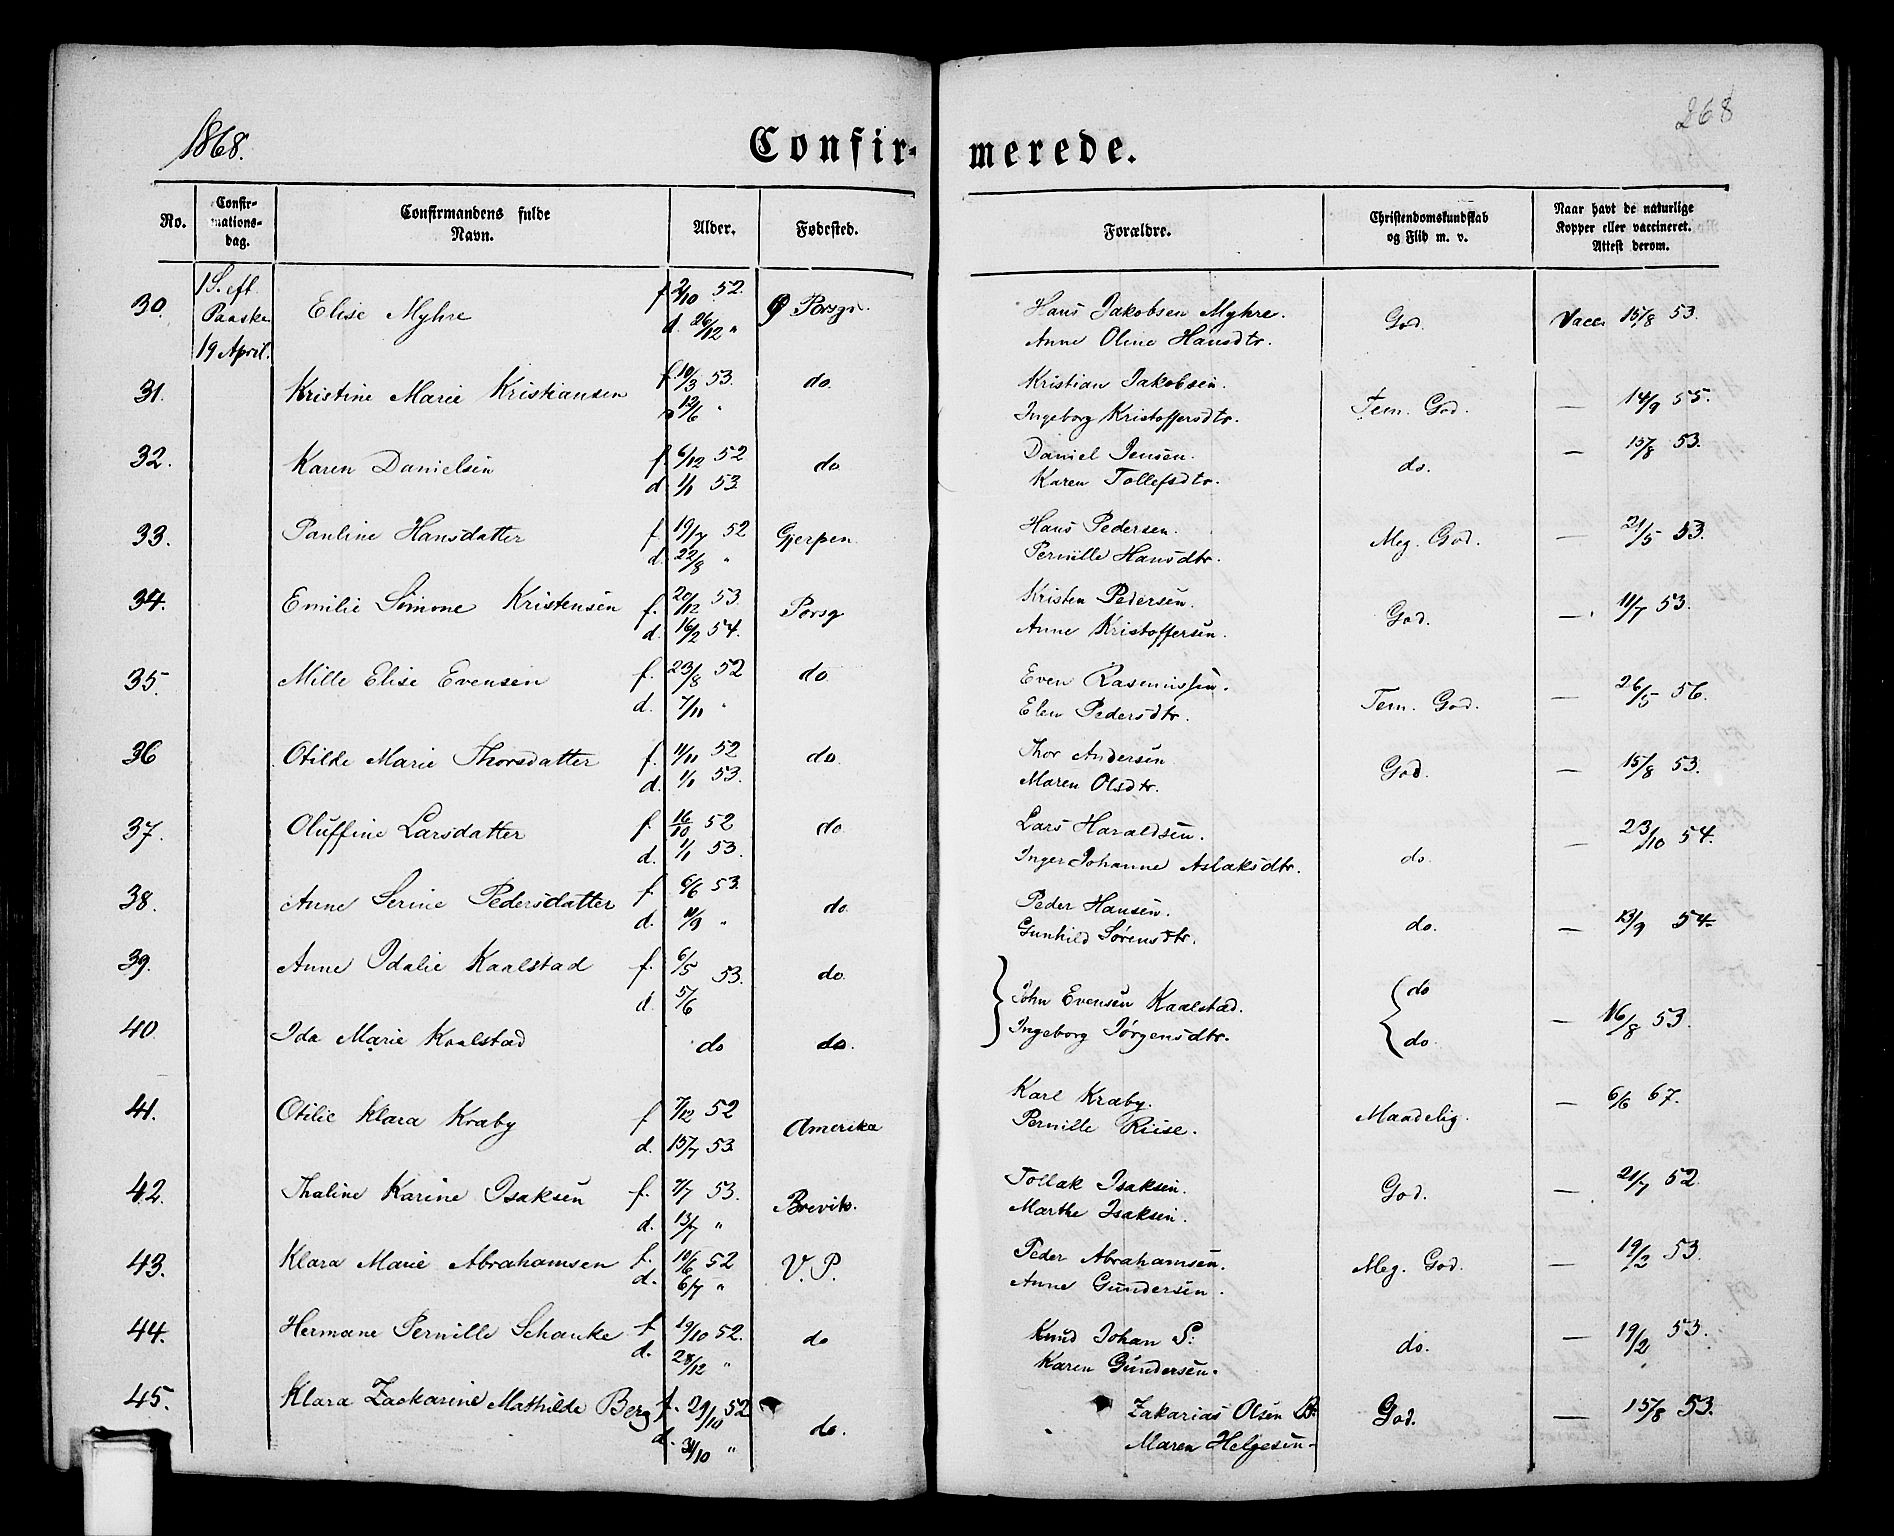 1868.
268
Confir- merede.
No. Confir-mations-dag. Confirmandens fulde Navn. Alder. Fødested. Forældre. Christendomskundskab og Flid m. v. Naar havt de naturlige Kopper eller vaccineret. Attest derom.
1 S. eft. Paaske 19 April.
30. Elise Myhre f 2/10 52. Ø Porsgr. Hans Jakobsen Myhre. God. Vacc. 15/8 53.
d. 26/12 " Anne Oline Hansdtr.
31. Kristine Marie Kristiansen f. 10/3 53. do. Kristian Jakobsen. Tem. God. — 14/9 55.
12/6 " Ingeborg Kristoffersdtr.
32. Karen Danielsen f. 6/12 52 do Daniel Jensen. do. — 15/8 53.
d. 1/1 53 Karen Tollefsdtr.
33. Pauline Hansdatter f. 19/7 52 Gjerpen Hans Pedersen. Meg. God. — 21/5 53.
d. 22/8 " Pernille Hansdtr.
34. Emilie Simone Kristensen f. 20/12 53. Porsg Kristen Pedersen. God. — 11/7 53.
d. 16/2 54. Anne Kristoffersen.
35. Mille Elise Evensen f. 23/8 52 do Even Rasmussen. Tem. God. — 26/5 56.
d. 7/11 " Elen Pedersdtr.
36 Otilde Marie Thorsdatter f. 11/11 52 do. Thor Andersen God. — 15/8 53.
d. 1/1 53. Maren Olsdtr.
37. Oluffine Larsdatter f. 16/10 52 do Lars Haraldsen. do. — 23/10 54.
d. 1/1 53. Inger Johanne Aslaksdtr.
38. Anne Serine Pedersdatter f. 6/6 53. do Peder Hansen. do. — 13/9 54
d. 11/9 " Gunhild Sørensdtr.
39. Anne Idalie Kaalstad f. 6/5 53. do. John Evensen Kaalstad. do — 16/8 53.
d 5/6
40. Ida Marie Kaalstad do do. Ingeborg Jørgensdtr. do.
41. Otilie Klara Kraby f 7/12 52 Amerika Karl Kraby. Maadelig. — 6/6 67.
d. 15/7 53. Pernille Riise.
42. Thaline Karine Isaksen f. 7/7 53. Brevik. Tollak Isaksen. God. — 21/7 52.
d. 13/7 " Marthe Isaksen.
43. Klara Marie Abrahamsen f. 10/6 52 V. P. Peder Abrahamsen. Meg. God. — 19/2 53.
d. 6/7 " Anne Gundersen.
44. Hermane Pernille Schanke f 19/10 52. do Knud Johan S: do. — 19/2 53.
d. 28/12 " Karen Gundersen.
45. Klara Zackarine Mathilde Berg f. 29/10 52 do. Zakarias Olsen B: God. — 15/8 53.
d. 31/10 " Maren Helgesen.